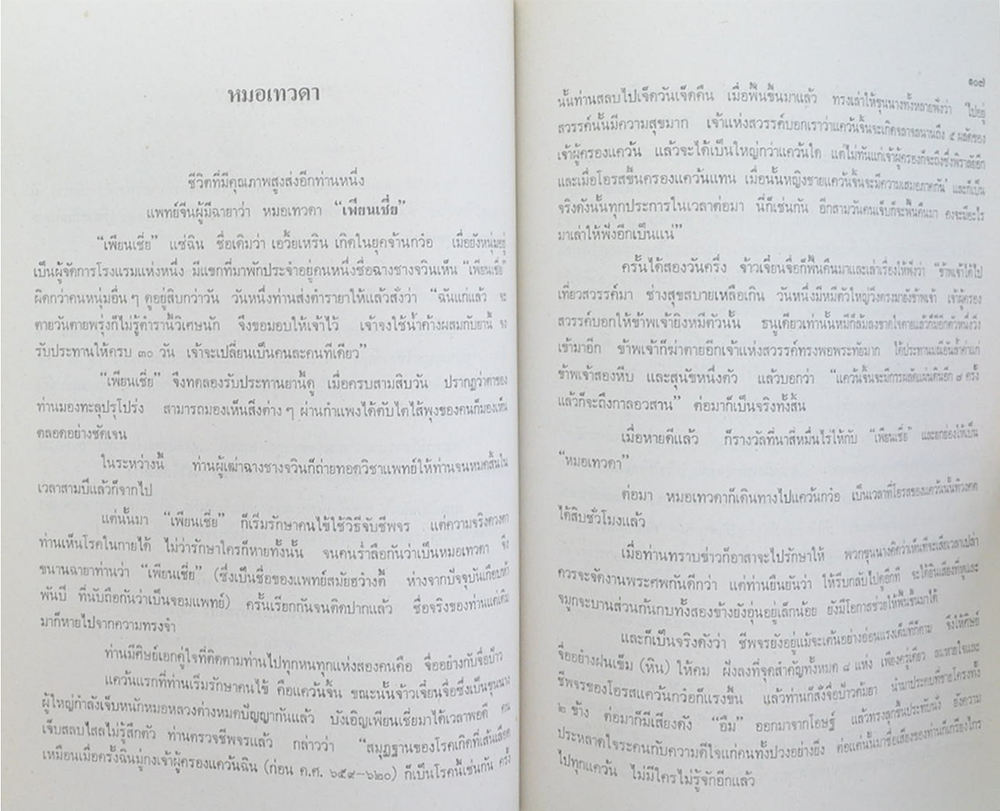 หมอเทวดา
ชีวิตที่มีคุณภาพสูงส่งอีกท่านหนึ่ง
แพทย์จีนผู้มีฉายาว่า หมอเทวดา “เพียนเชี่ย”
“เพียนเชี่ย” แซ่ฉิน ชื่อเดิมว่า เอวี้ยเหริน เกิดในยุคจ้านกว๋อ เมื่อยังหนุ่มอยู่
เป็นผู้จัดการโรงแรมแห่งหนึ่ง มีแขกที่มาพักประจำอยู่คนหนึ่งชื่อฉางซางจวินเห็น “เพียนเชี่ย”
ผิดกว่าคนหนุ่มอื่นๆ ดูอยู่สิบกว่าวัน วันหนึ่งท่านส่งตำรายาให้แล้วสั่งว่า “ฉันแก่แล้ว จะ
ตายวันตายพรุ่งก็ไม่รู้ตำรานี้วิเศษนัก จึงขอมอบให้เจ้าไว้ เจ้าจงใช้น้ำค้างผสมกับยานี้ จง
รับประทานให้ครบ ๓๐ วัน เจ้าจะเปลี่ยนเป็นคนละคนทีเดียว”
“เพียนเชี่ย” จึงทดลองรับประทานยานี้ดู เมื่อครบสามสิบวัน ปรากฏว่าตาของ
ท่านมองทะลุปรุโปร่ง สามารถมองเห็นสิ่งต่างๆ ผ่านกำแพงได้ตับไตไส้พุงของคนก็มองเห็น
ตลอดอย่างชัดเจน
ในระหว่างนี้ ท่านผู้เฒ่าฉางซางจวินก็ถ่ายทอดวิชาแพทย์ให้ท่านจนหมดสิ้นใน
เวลาสามปีแล้วก็จากไป
แต่นั้นมา “เพียนเชี่ย” ก็เริ่มรักษาคนไข้ใช้วิธีจับชีพจร แต่ความจริงดวงตา
ท่านเห็นโรคในกายได้ ไม่ว่ารักษาใครก็หายทั้งนั้น จนคนร่ำลือกันว่าเป็นหมอเทวดา จึง
ขนานฉายาท่านว่า “เพียนเชี่ย” (ซึ่งเป็นชื่อของแพทย์สมัยฮวังตี้ ห่างจากปัจจุบันเกือบห้า
พันปี ที่นับถือกันว่าเป็นจอมแพทย์) ครั้นเรียกกันจนติดปากแล้ว ชื่อจริงของท่านแต่เดิม
มาก็หายไปจากความทรงจำ
ท่านมีศิษย์เอกคู่ใจที่ติดตามท่านไปทุกหนทุกแห่งสองคนคือ จื่ออย่างกับจื่อบ้าว
แคว้นแรกที่ท่านเริ่มรักษาคนไข้ คือแคว้นจิ้น ขณะนั้นจ้าวเจี่ยนจื่อซึ่งเป็นขุนนาง
ผู้ใหญ่กำลังเจ็บหนักหมอหลวงต่างหมดปัญญากันแล้ว บังเอิญเพียนเชี่ยมาได้เวลาพอดี คน
เจ็บสลบไสลไม่รู้สึกตัว ท่านตรวจชีพจรแล้ว กล่าวว่า “สมุฏฐานของโรคเกิดที่เส้นเลือด
เหมือนเมื่อครั้งฉินมู่กงเจ้าผู้ครองแคว้นฉิน (ก่อน ค.ศ. ๖๕๙–๖๒๐) ก็เป็นโรคนี้เช่นกัน ครั้ง
๑๐๗
นั้นท่านสลบไปเจ็ดวันเจ็ดคืน เมื่อฟื้นขึ้นมาแล้ว ทรงเล่าให้ขุนนางทั้งหลายฟังว่า ไปอยู่
สวรรค์นั้นมีความสุขมาก เจ้าแห่งสวรรค์บอกเราว่าแคว้นจิ้นจะเกิดจลาจลนานถึง ๕ ผลัดของ
เจ้าผู้ครองแคว้น แล้วจะได้เป็นใหญ่กว่าแคว้นใด แต่ไม่ทันแก่เจ้าผู้ครองก็จะถึงซึ่งพิราลัยอีก
และเมื่อโอรสขึ้นครองแคว้นแทน เมื่อนั้นหญิงชายแคว้นจิ้นจะมีความเสมอภาคกัน และก็เป็น
จริงดังนั้นทุกประการในเวลาต่อมา นี่ก็เช่นกัน อีกสามวันคนเจ็บก็จะฟื้นคืนมา คงจะมีอะไร
มาเล่าให้ฟังอีกเป็นแน่”
ครั้นได้สองวันครึ่ง จ้าวเจี่ยนจื่อก็ฟื้นคืนมาและเล่าเรื่องให้ฟังว่า “ข้าพเจ้าได้ไป
เที่ยวสวรรค์มา ช่างสุขสบายเหลือเกิน วันหนึ่งมีหมีตัวใหญ่วิ่งตรงมายังข้าพเจ้า เจ้าผู้ครอง
สวรรค์บอกให้ข้าพเจ้ายิงหมีตัวนั้น ธนูเดียวเท่านั้นหมีก็ล้มลงขาดใจตายแล้วก็มีอีกตัวหนึ่งวิ่ง
เข้ามาอีก ข้าพเจ้าก็ฆ่าตายอีกเจ้าแห่งสวรรค์ทรงพอพระทัยมาก ได้ประทานมณีอันล้ำค่าแก่
ข้าพเจ้าสองหีบ และสุนัขหนึ่งตัว แล้วบอกว่า “แคว้นจิ้นจะมีการผลัดแผ่นดินอีก ๗ ครั้ง
แล้วก็จะถึงกาลอวสาน” ต่อมาก็เป็นจริงทั้งสิ้น
เมื่อหายดีแล้ว ก็รางวัลที่นาสี่หมื่นไร่ให้กับ “เพียนเชี่ย” และยกย่องให้เป็น
“หมอเทวดา”
ต่อมา หมอเทวดาก็เดินทางไปแคว้นกว๋อ เป็นเวลาที่โอรสของแคว้นนั้นทิวงคต
ได้สิบชั่วโมงแล้ว
เมื่อท่านทราบข่าวก็อาสาจะไปรักษาให้ พวกขุนนางคิดว่าเห็นทีจะเสียเวลาเปล่า
ควรจะจัดงานพระศพกันดีกว่า แต่ท่านยืนยันว่า ให้รีบกลับไปดูอีกที จะได้ยินเสียงที่หูและ
จมูกจะบานส่วนก้นกบทั้งสองข้างยังอุ่นอยู่เล็กน้อย ยังมีโอกาสช่วยให้ฟื้นขึ้นมาได้
และก็เป็นจริงดังว่า ชีพจรยังอยู่แม้จะเต้นอย่างอ่อนแรงเต็มทีก็ตาม จึงให้ศิษย์
จื่ออย่างฝนเข็ม (หิน) ให้คม ฝังลงที่จุดสำคัญทั้งหมด ๘ แห่ง เพียงครู่เดียว ลมหายใจและ
ชีพจรของโอรสแคว้นกว๋อก็แรงขึ้น แล้วท่านก็สั่งจื่อบ้าวต้มยา นำมาประคบที่ชายโครงทั้ง
๒ ข้าง ต่อมาก็มีเสียงดัง “อืม” ออกมาจากโอษฐ์ แล้วทรงลุกขึ้นประทับนั่ง ยังความ
ประหลาดใจระคนกับความดีใจแก่คนทั้งปวงอย่างยิ่ง ต่อแต่นั้นมาชื่อเสียงของท่านก็เกรียงไกร
ไปทุกแคว้น ไม่มีใครไม่รู้จักอีกแล้ว